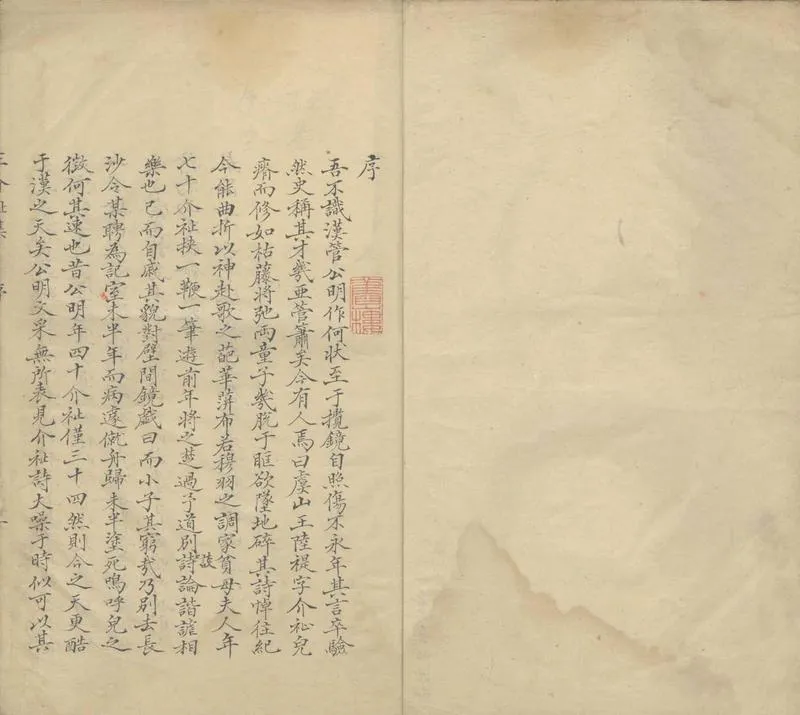 序
吾不識漢管公明作何狀至于攬鏡自照傷不永年其言卒驗
然史稱其才幾亞管簫矣今有人焉曰虞山王陸禔字介祉皃
瘠而修如枯藤將弛兩童子幾脫于眶欲墜地碎其詩悼往紀
今能曲折以神赴歌之葩華蓱布若穆羽之調家貧母夫人年
七十介祉挾一鞭一筆遊前年將之楚過予道別詩論諧謔相
談
樂也已而自戚其貌對壁間鏡戲曰而小子其窮哉乃別去長
沙令某聘為記室未半年而病遽僦舟歸未半塗死嗚呼皃之
徵何其速也昔公明年四十介祉僅三十四然則今之天更酷
于漢之天矣公明文采無所表見介祉詩大噪于時似可以其
介祉集 序